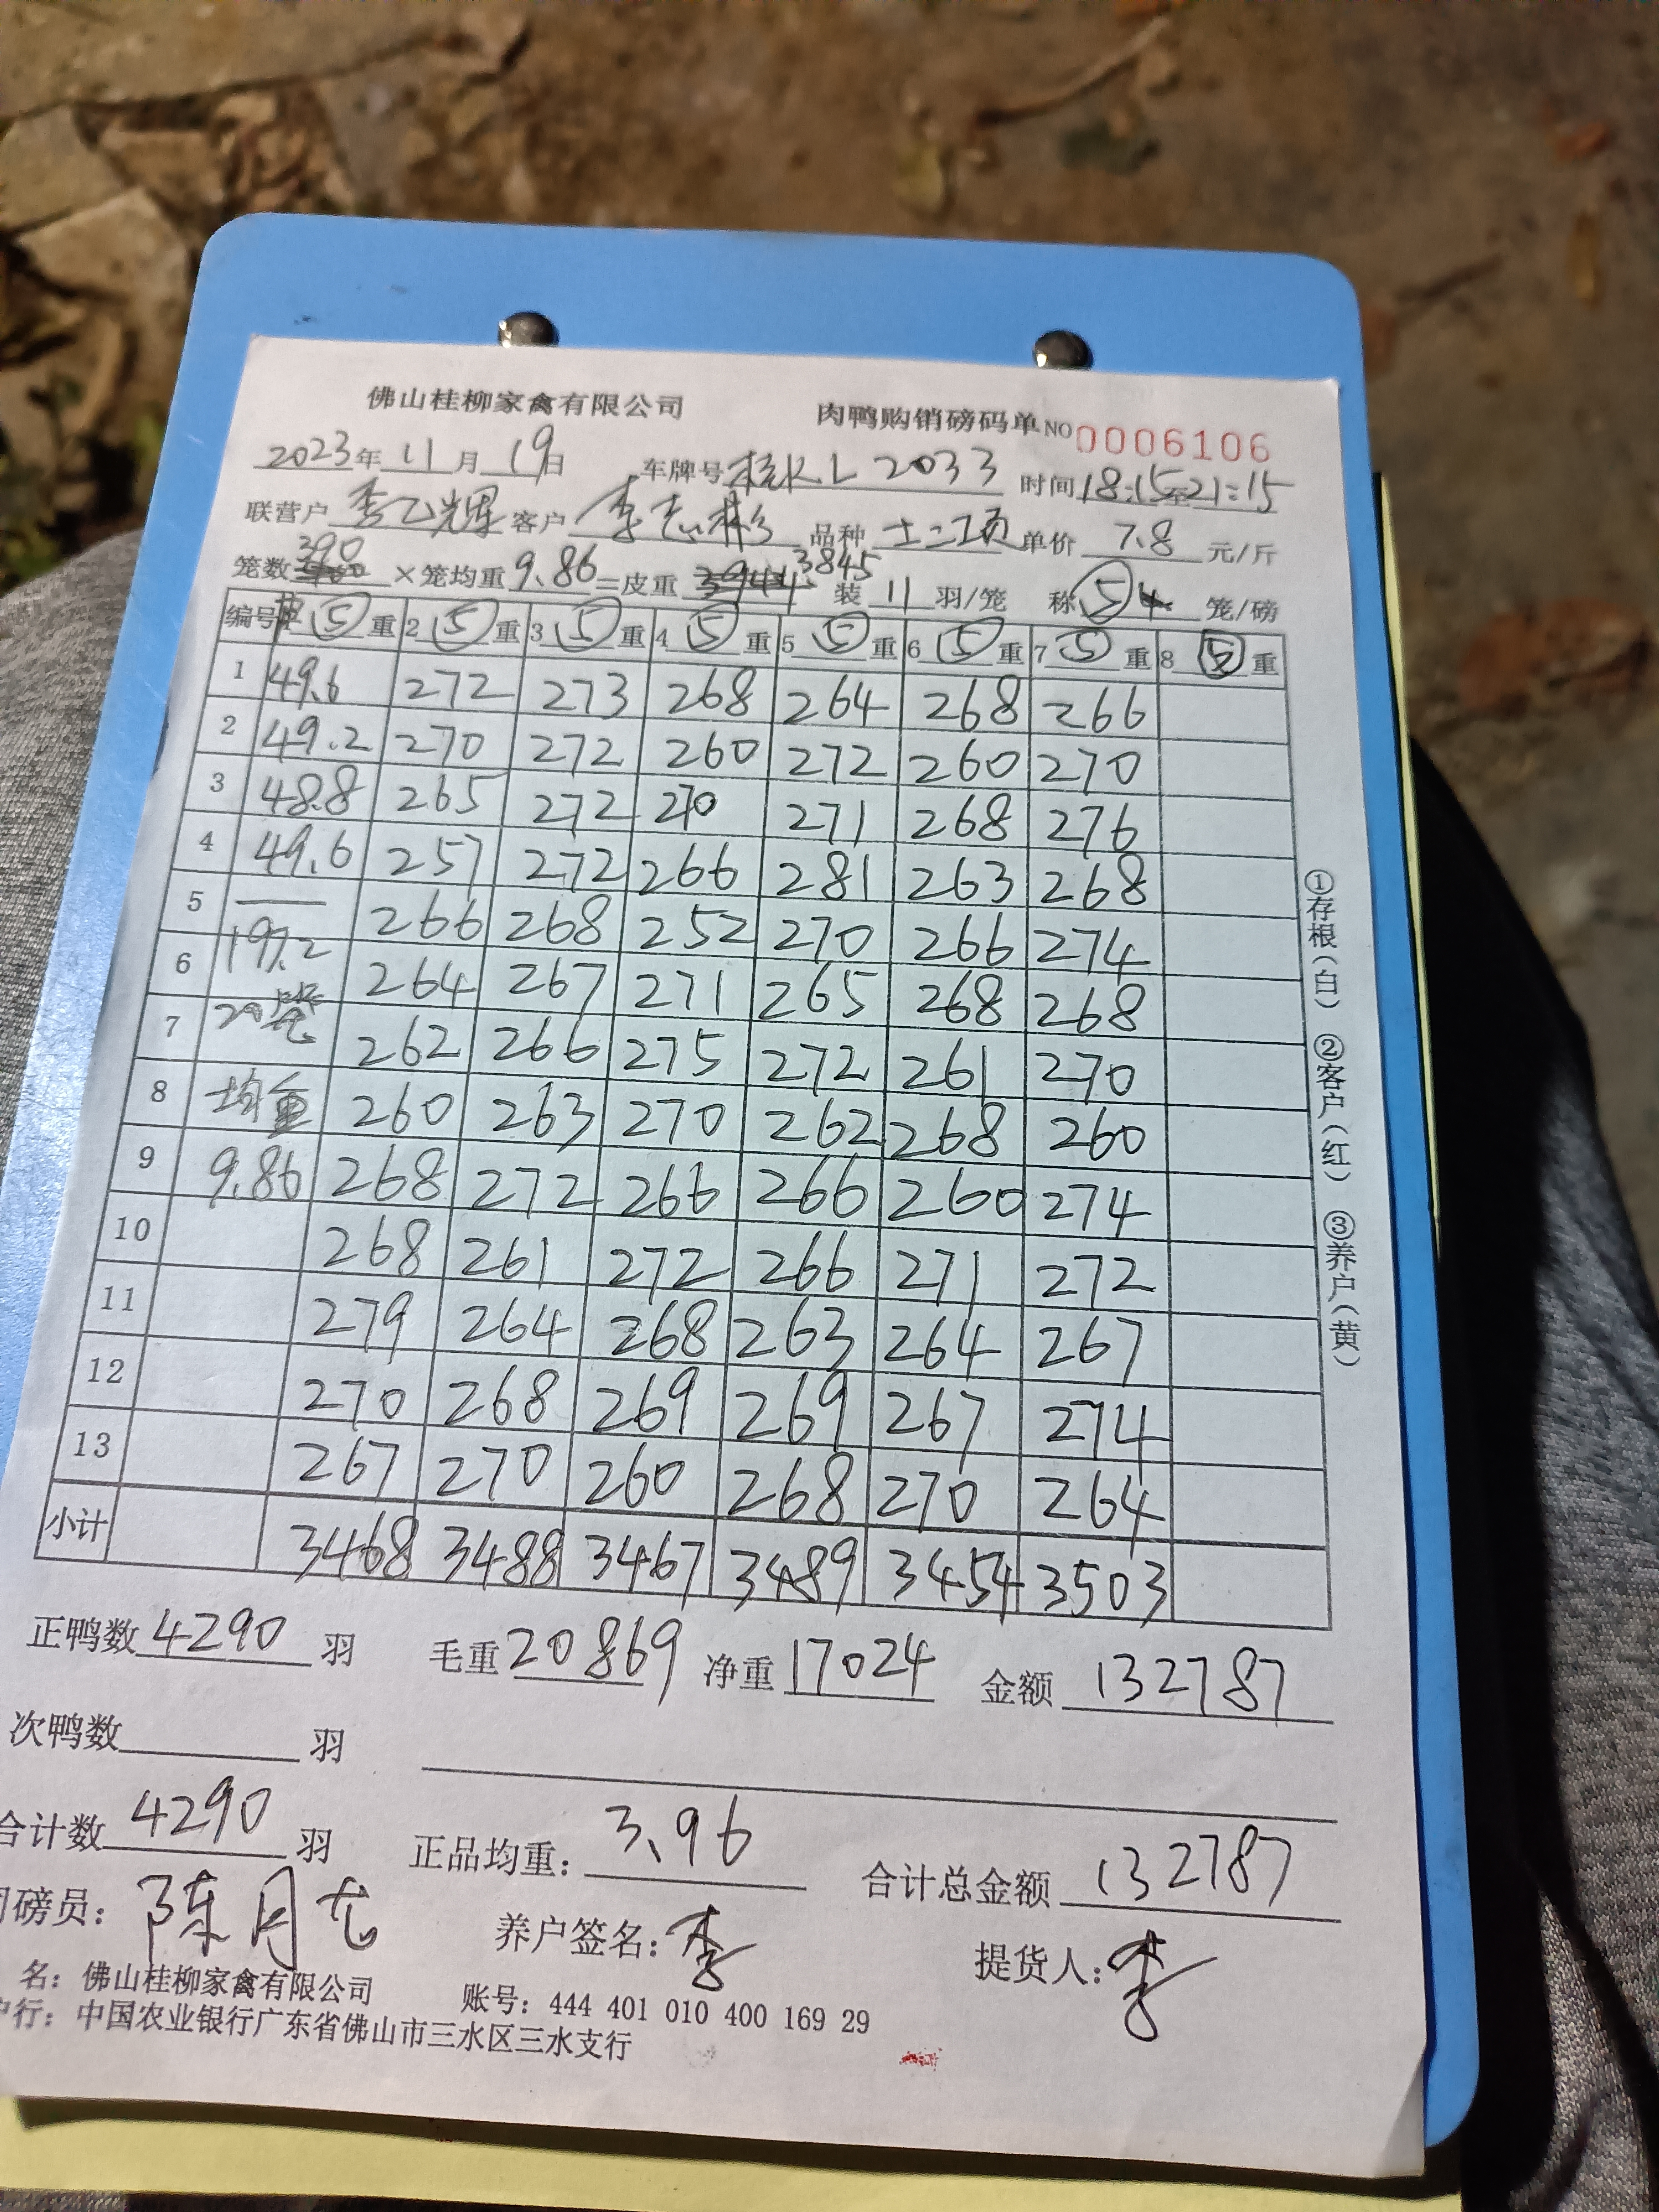 佛山桂柳家禽有限公司 肉鸭购销磅码单 NO 0006106
2023年 11月 19日 车牌号 桂K.L 2033 时间 18:15至21:15
联营户 李乙辉 客户 李志彬 品种 土二项 单价 7.8 元/斤
笼数 390 ×笼均重 9.86 =皮重 3845 装 11 羽/笼 称 5 笼/磅
编号 ⑤重 2 ⑤重 3 ⑤重 4 ⑤重 5 ⑤重 6 ⑤重 7 ⑤重 8 ⑤重
1 49.6 272 273 268 264 268 266
2 49.2 270 272 260 272 260 270
3 48.8 265 272 270 271 268 276
4 49.6 257 272 266 281 263 268
5 266 268 252 270 266 274
6 197.2 264 267 271 265 268 268
7 20笼 262 266 275 272 261 270
8 均重 260 263 270 262 268 260
9 9.86 268 272 266 266 260 274
10 268 261 272 266 271 272
11 279 264 268 263 264 267
12 270 268 269 269 267 274
13 267 270 260 268 270 264
小计 3468 3488 3467 3489 3454 3503
正鸭数 4290 羽 毛重 20869 净重 17024 金额 132787
次鸭数 羽
合计数 4290 羽 正品均重: 3.96 合计总金额 132787
磅员: 陈月龙 养户签名: 李 提货人: 李
名: 佛山桂柳家禽有限公司 账号: 444 401 010 400 169 29
户行: 中国农业银行广东省佛山市三水区三水支行
①存根(白) ②客户(红) ③养户(黄)